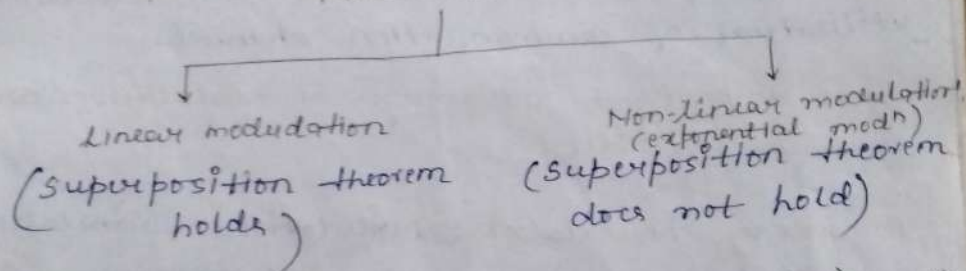 Linear modudation
(superposition theorem
holds)
Non-linear modulation
(exponential modn)
(superposition theorem
does not hold)